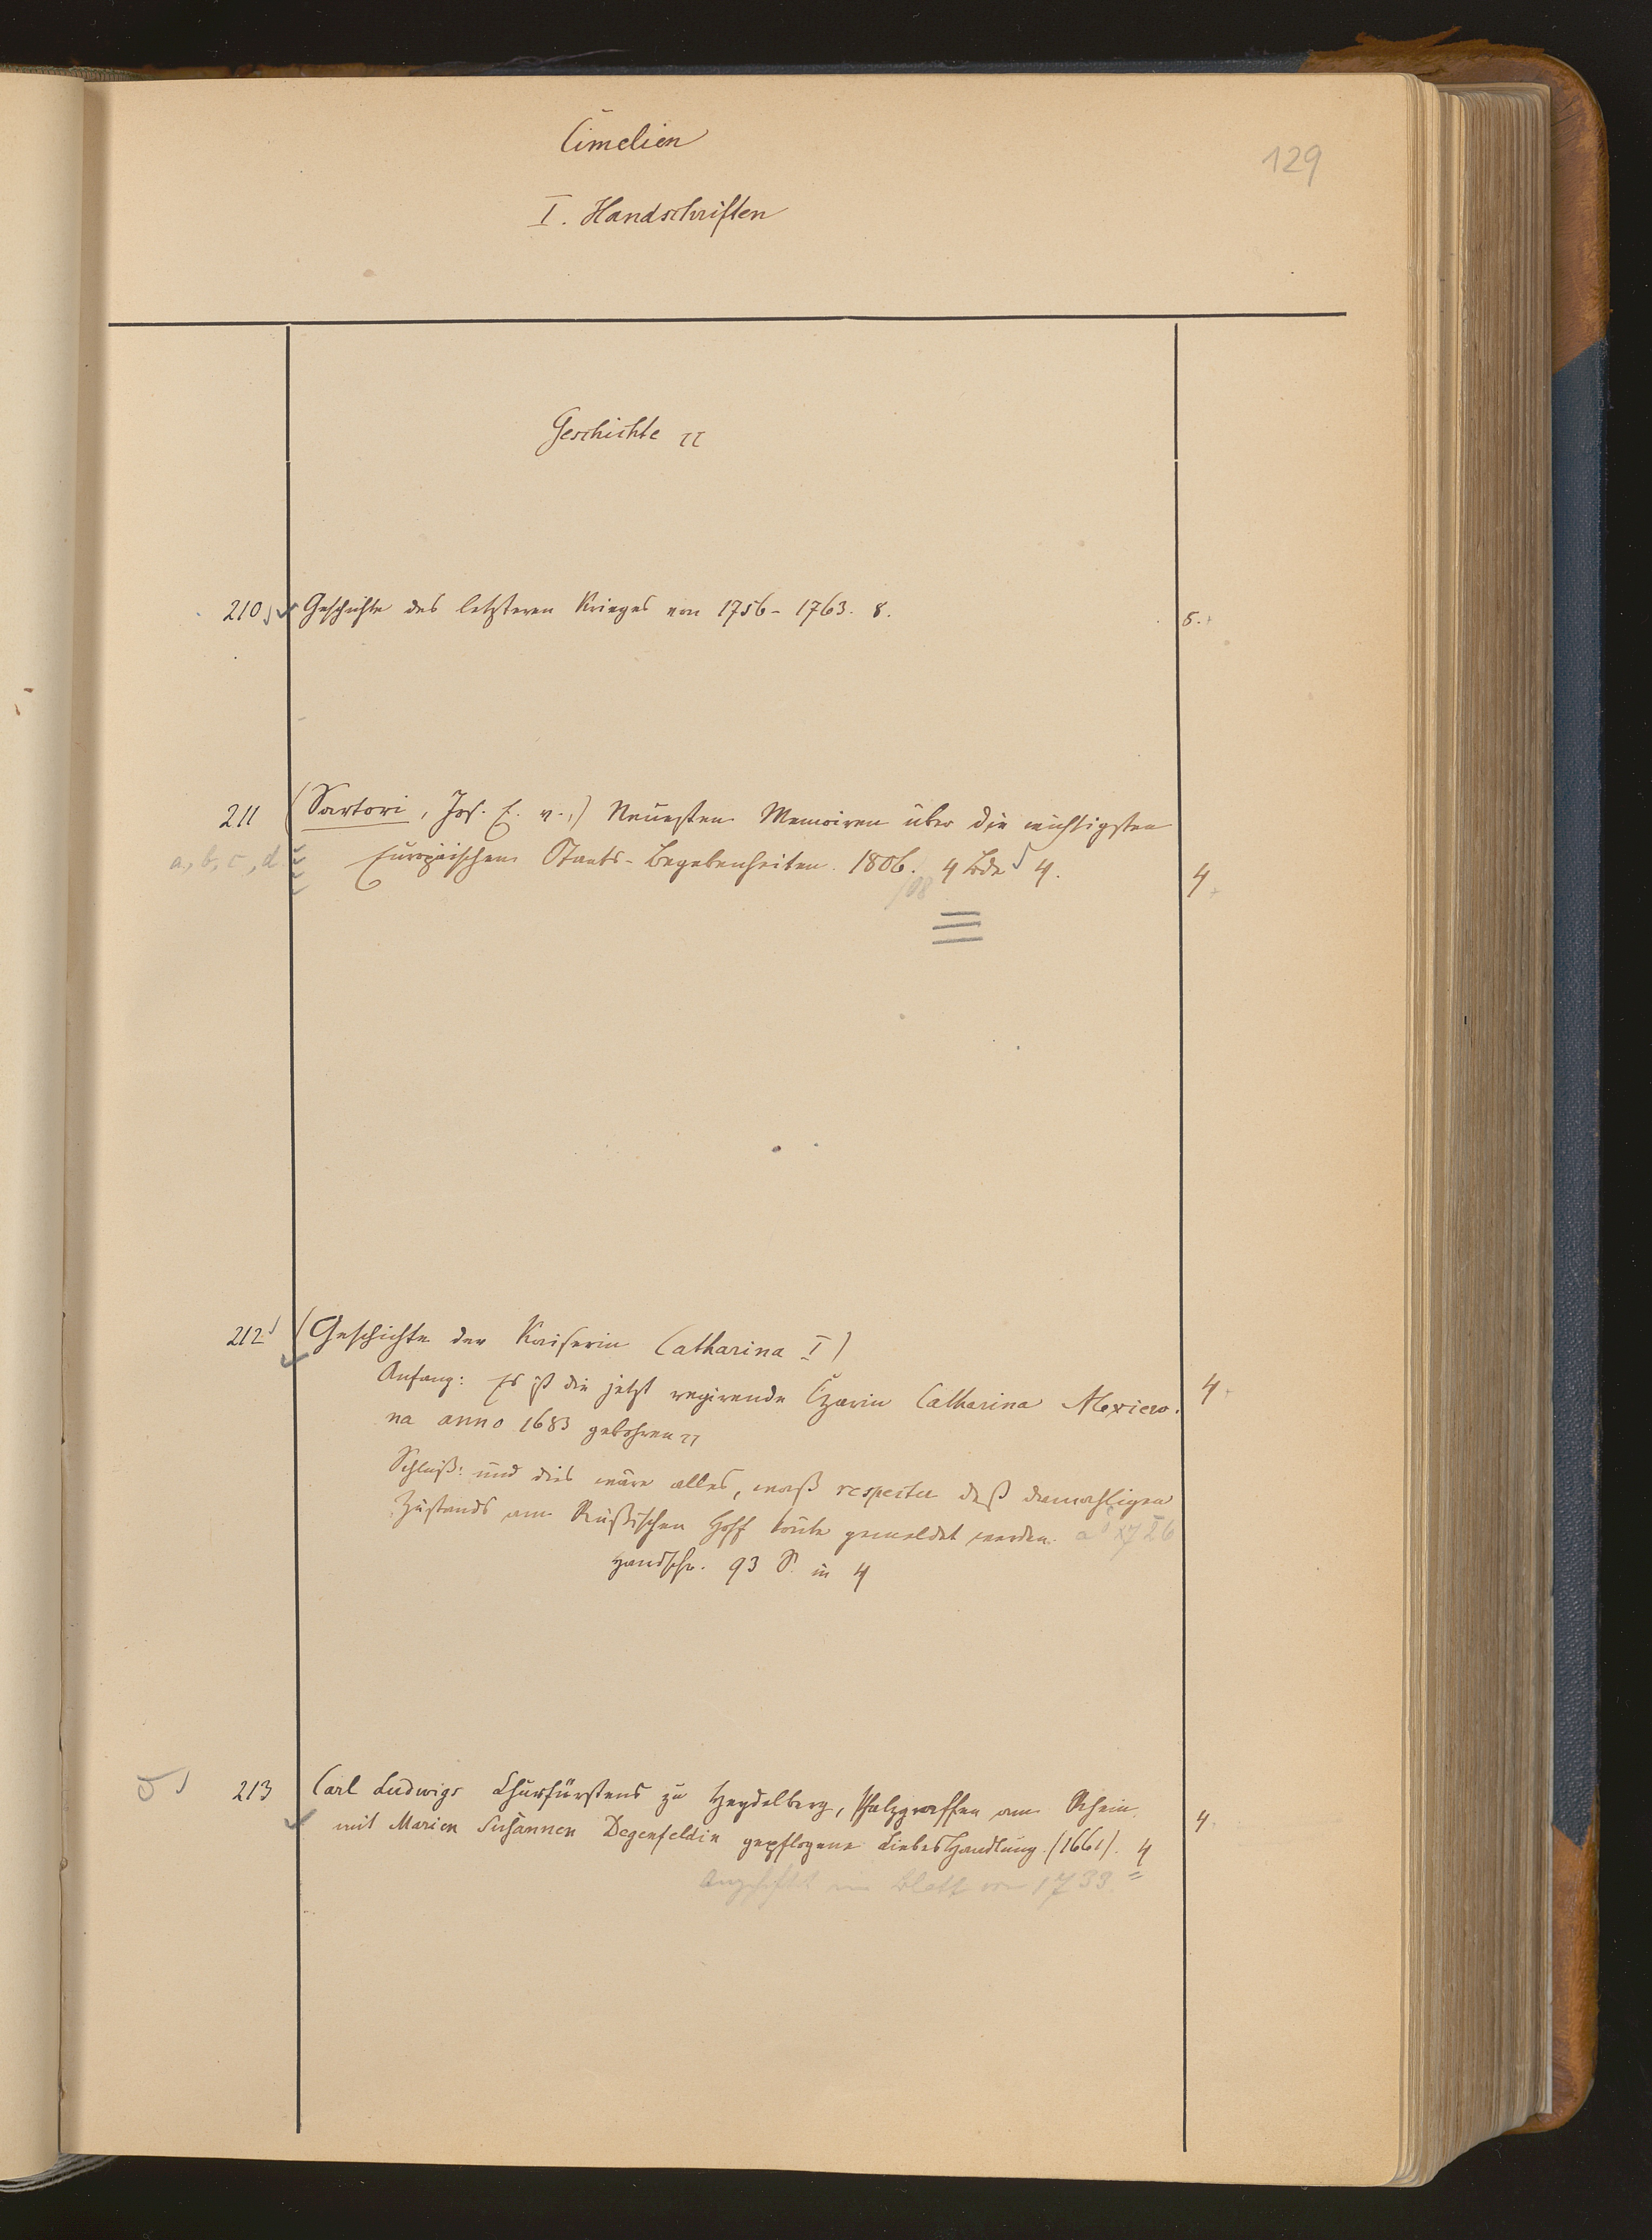 Cimelien
129
I. Handschriften
Geschichte
210 Geschichte des letzteren Krieges von 1756-1763. 8. 8.
211 (Sartori, Jos. E. v.,) Neuesten Memoiren über die wichtigsten
a, b, c, d Europäischen Staats-Begebenheiten. 1806. 4 Bde 4. 4
/08
212 (Geschichte der Kaiserin Catharina I)
Anfang: Es ist die jetzt regirende Czarin Catharina Alexiew- 4
na anno 1683 gebohren
Schluß: und dies wäre alles, waß respectu deß damahligen
Zustands am Rußischen Hoff könte gemeldet werden. a° 1726
Handschr. 93 S. in 4
213 Carl Ludwigs Churfürstens zu Heydelberg, Pfalzgraffen am Rhein 4
mit Marien Susannen Degenfeldin gepflogene Liebes Handlung. (1661). 4
Angeheftet ein Blatt von 1733.